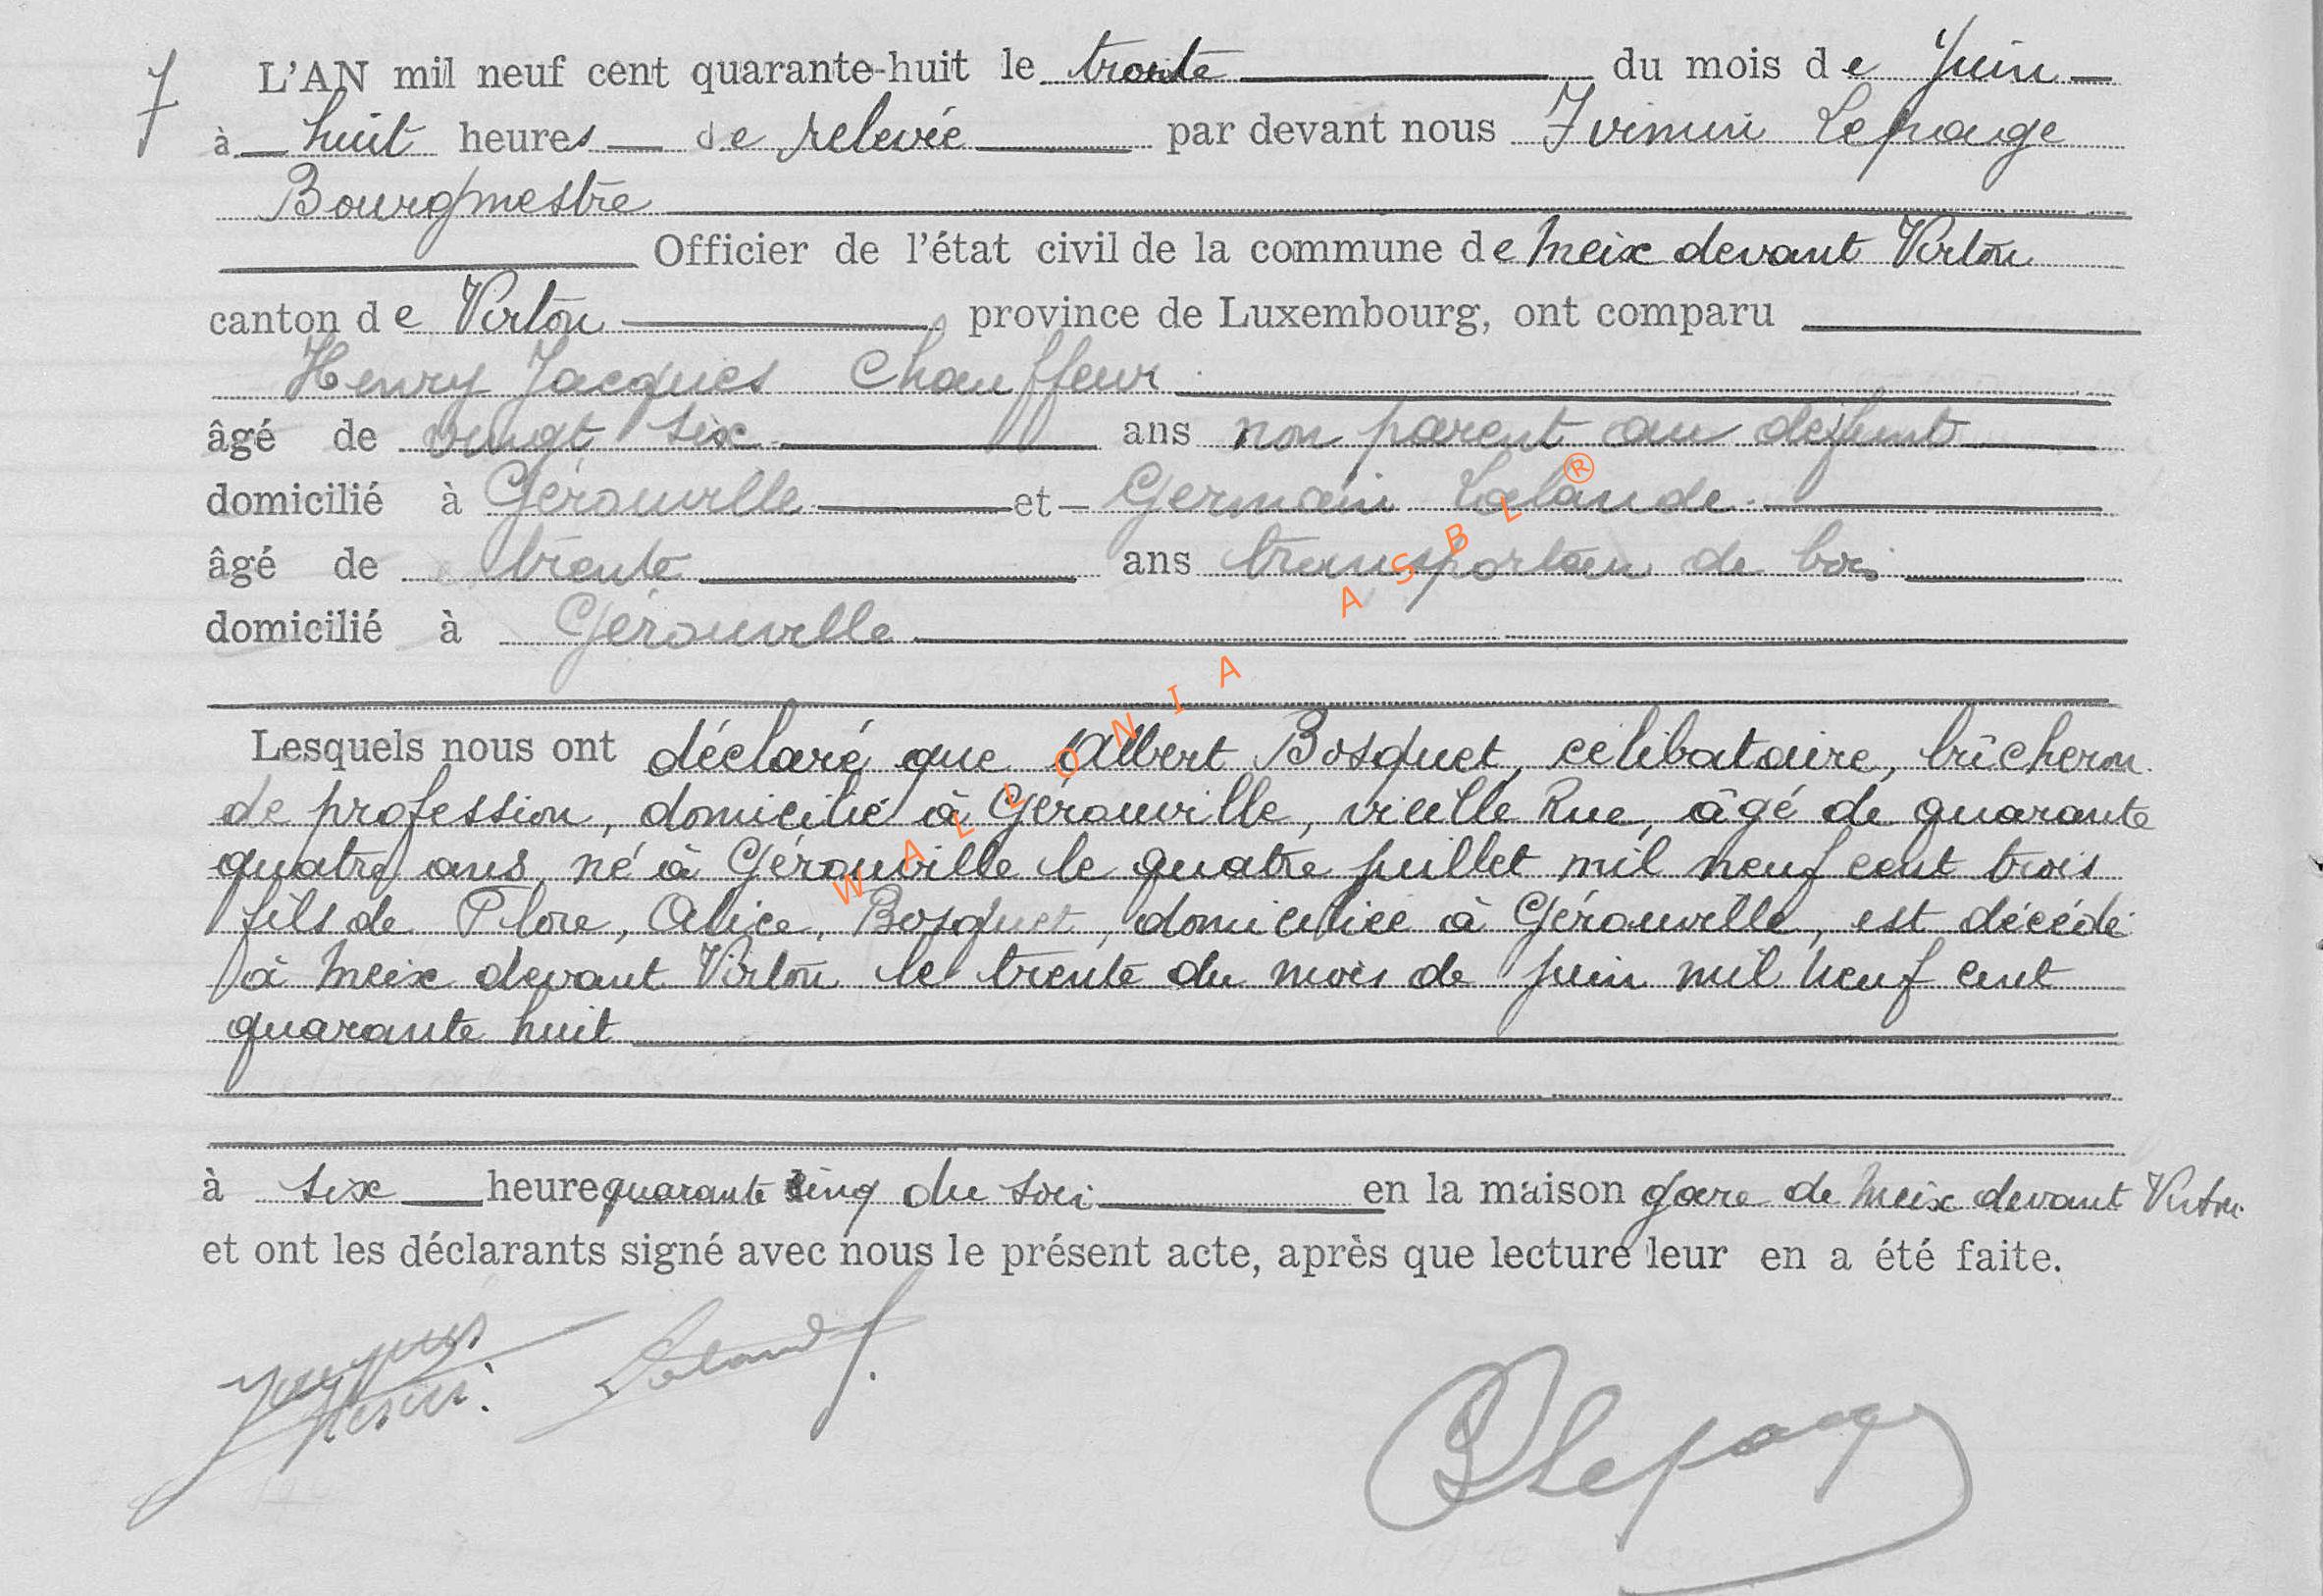 7 L'AN mil neuf cent quarante-huit le trente du mois de Juin
à huit heures de relevée par devant nous Firmin Lepage
Bourgmestre
Officier de l'état civil de la commune de Meix devant Virton
canton de Virton province de Luxembourg, ont comparu
Henry Jacques Chauffeur
âgé de vingt six ans non parent au defunt
domicilié à Gérouville et Germain Lalande
âgé de trente ans transporteur de bois
domicilié à Gérouville
Lesquels nous ont déclaré que Albert Bosquet, célibataire, bûcheron
de profession, domicilié à Gérouville, vieille Rue, âgé de quarante
quatre ans, né à Gérouville le quatre juillet mil neuf cent trois
fils de Flore, Alice, Bosquet, domiciliée à Gérouville, est décédé
à Meix devant Virton le trente du mois de juin mil neuf cent
quarante huit
à six heure quarante cinq du soir en la maison gare de Meix devant Virton
et ont les déclarants signé avec nous le présent acte, après que lecture leur en a été faite.
Jacques Lalande
Henri. Lepage
WALLONIA ASBL ®